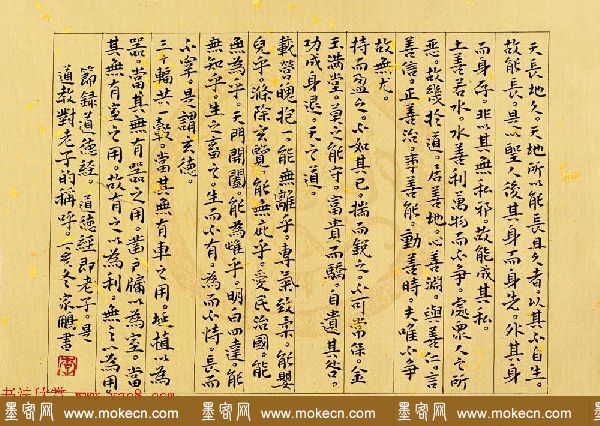 天長地久。天地所以能長且久者。以其不自生。
故能長。是以聖人後其身而身先。外其身
而身存。非以其無私邪。故能成其私。
上善若水。水善利萬物而不爭。處衆人之所
惡。故幾於道。居善地。心善淵。與善仁。言
善信。正善治。事善能。動善時。夫唯不爭
故無尤。
持而盈之。不如其已。揣而銳之。不可常保。金
玉滿堂。莫之能守。富貴而驕。自遺其咎。
功成身退。天之道。
載營魄抱一。能無離乎。專氣致柔。能嬰
兒乎。滌除玄覽。能無疵乎。愛民治國。能
無為乎。天門開闔。能為雌乎。明白四達。能
無知乎。生之畜之。生而不有。為而不恃。長而
不宰。是謂玄德。
三十輻共一轂。當其無有車之用。埏植以為
器。當其無有器之用。鑿戶牖以為室。當
其無有室之用。故有之以為利。無之以為用。
節錄道德經。道德經即老子。是
道教對老子的稱呼。冬家鵬書
墨客网 www.mokecn.com 墨客网 www.mokecn.com 墨客网 www.mokecn.com